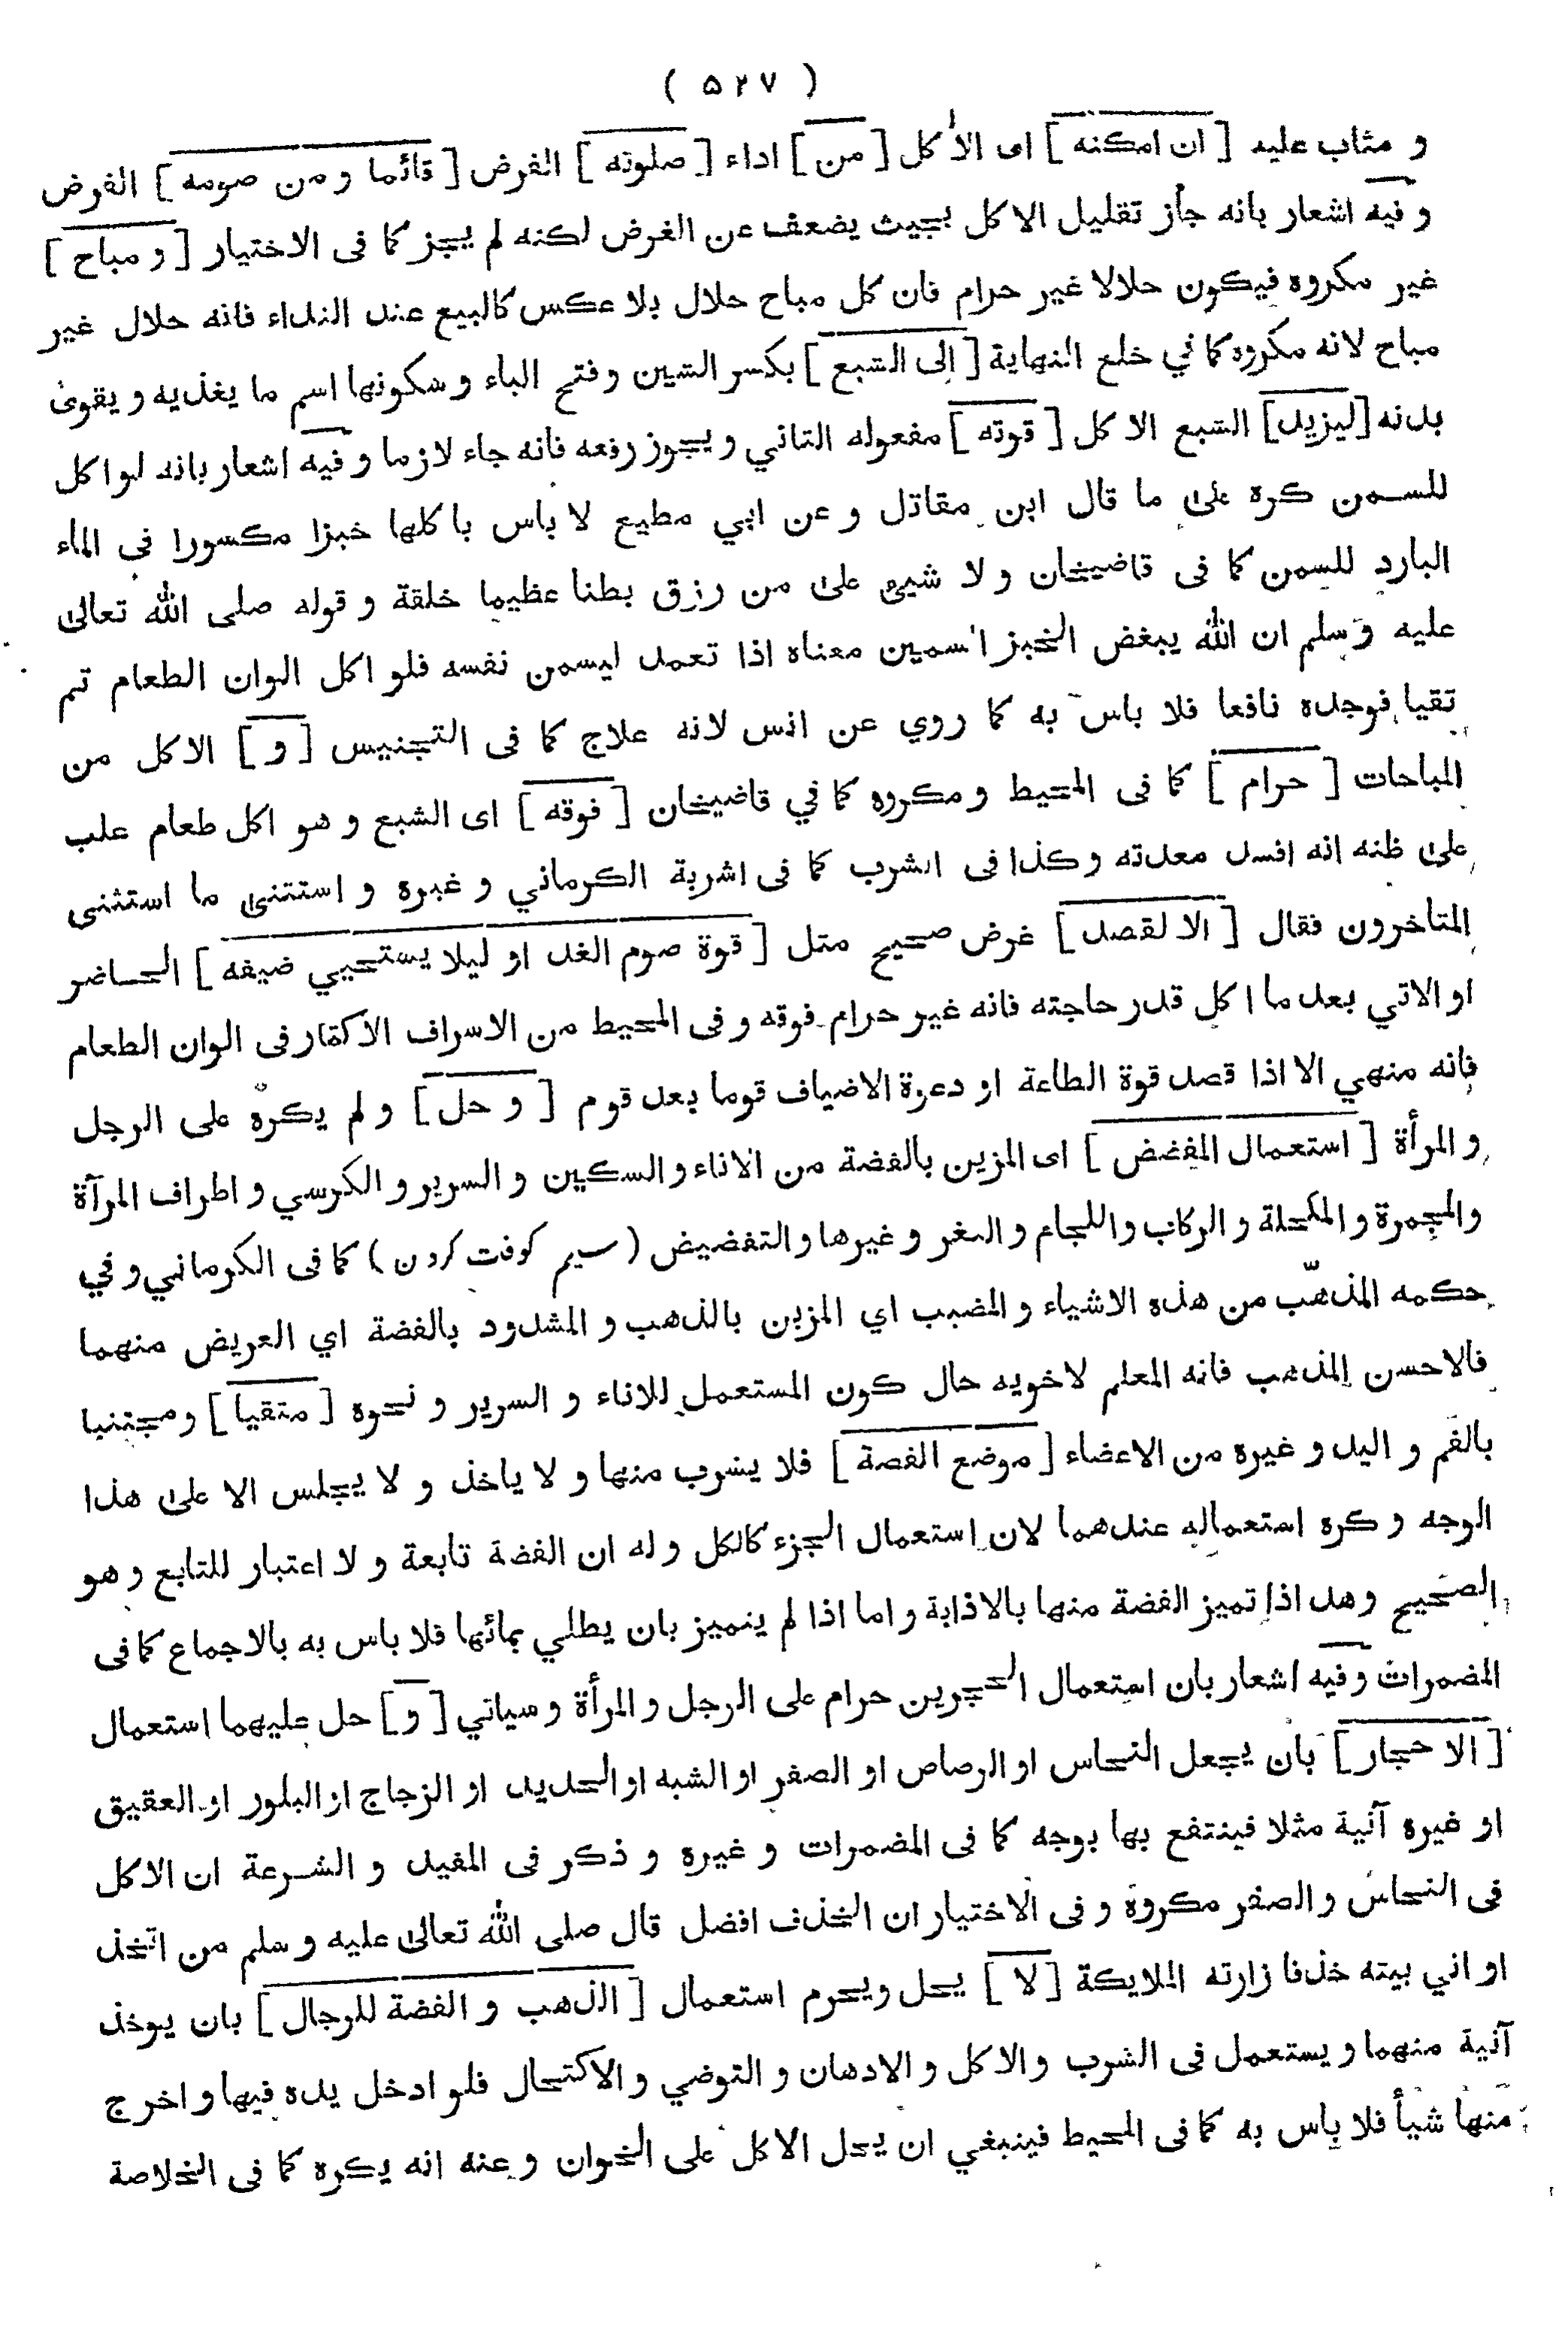 ( ۵۲۷ )
و مثاب عليه [ ان امكنه ] اى الاكل [ من ] اداء [ صلوته ] الفرض [ قائما و من صومه ] الفرض
و فيه اشعار بانه جاز تقليل الاكل بحيث يضعف عن الفرض لكنه لم يجز كما فى الاختيار [ و مباح ]
غير مكروه فيكون حلالا غير حرام فان كل مباح حلال بلا عكس كالبيع عند النداء فانه حلال غير
مباح لانه مكروه كما في خلع النهاية [ الى الشبع ] بكسر الشين و فتح الباء و سكونها اسم ما يغذيه و يقوى
بدنه [ ليزيد ] الشبع الاكل [ قوته ] مفعوله الثاني و يجوز رفعه فانه جاء لازما و فيه اشعار بانه لو اكل
للسمن كره على ما قال ابن مقاتل و عن ابي مطيع لا باس باكلها خبزا مكسورا في الماء
البارد للسمن كما فى قاضيخان و لا شيئ على من رزق بطنا عظيما خلقة و قوله صلى الله تعالى
عليه و سلم ان الله يبغض الخبز السمين معناه اذا تعمد ليسمن نفسه فلو اكل الوان الطعام ثم
تقيا فوجده نافعا فلا باس به كما روي عن انس لانه علاج كما فى التجنيس [ و ] الاكل من
المباحات [ حرام ] كما فى المحيط و مكروه كما في قاضيخان [ فوقه ] اى الشبع و هو اكل طعام علب
على ظنه انه افسد معدته و كذا فى الشرب كما فى اشربة الكرماني و غيره و استثنى ما استثنى
المتأخرون فقال [ الا لقصد ] غرض صحيح مثل [ قوة صوم الغد او ليلا يستحيي ضيفه ] الحاضر
او الاتي بعد ما اكل قدر حاجته فانه غير حرام فوقه و فى المحيط من الاسراف الاكثار فى الوان الطعام
فانه منهي الا اذا قصد قوة الطاعة او دعوة الاضياف قوما بعد قوم [ و حل ] و لم يكره على الرجل
و المرأة [ استعمال المفضض ] اى المزين بالفضة من الاناء و السكين و السرير و الكرسي و اطراف المرآة
والمجمرة و المكحلة و الركاب و اللجام و الثغر و غيرها و التفضيض ( سيم كوفت كردن ) كما فى الكرماني و في
حكمه المذهّب من هذه الاشياء و المضبب اي المزين بالذهب و المشدود بالفضة اي العريض منهما
فالاحسن المذهب فانه المعلم لاخويه حال كون المستعمل للاناء و السرير و نحوه [ متقيا ] و مجتنبا
بالفم و اليد و غيره من الاعضاء [ موضع الفصة ] فلا يشرب منها و لا ياخذ و لا يجلس الا على هذا
الوجه و كره استعماله عندهما لان استعمال الجزء كالكل و له ان الفضة تابعة و لا اعتبار للتابع و هو
الصحيح و هذ اذا تميز الفضة منها بالاذابة و اما اذا لم يتميز بان يطلي بمائها فلا باس به بالاجماع كما فى
المضمرات و فيه اشعار بان استعمال الحجرين حرام على الرجل و المرأة و سياتي [ و ] حل عليهما استعمال
[ الاحجار ] بان يجعل النحاس او الرصاص او الصفر او الشبه او الحديد او الزجاج او البلور او العقيق
او غيره آنية مثلا فينتفع بها بوجه كما فى المضمرات و غيره و ذكر فى المفيد و الشرعة ان الاكل
فى النحاس و الصفر مكروه و فى الاختيار ان الخذف افضل قال صلى الله تعالى عليه و سلم من اتخذ
اواني بيته خذفا زارته الملايكة [ لا ] يحل ويحرم استعمال [ الذهب و الفضة للرجال ] بان يوخذ
آنية منهما و يستعمل فى الشرب و الاكل و الادهان و التوضي و الاكتحال فلو ادخل يده فيها و اخرج
منها شيأ فلا باس به كما فى المحيط فينبغي ان يحل الاكل على الخوان و عنه انه يكره كما فى الخلاصة